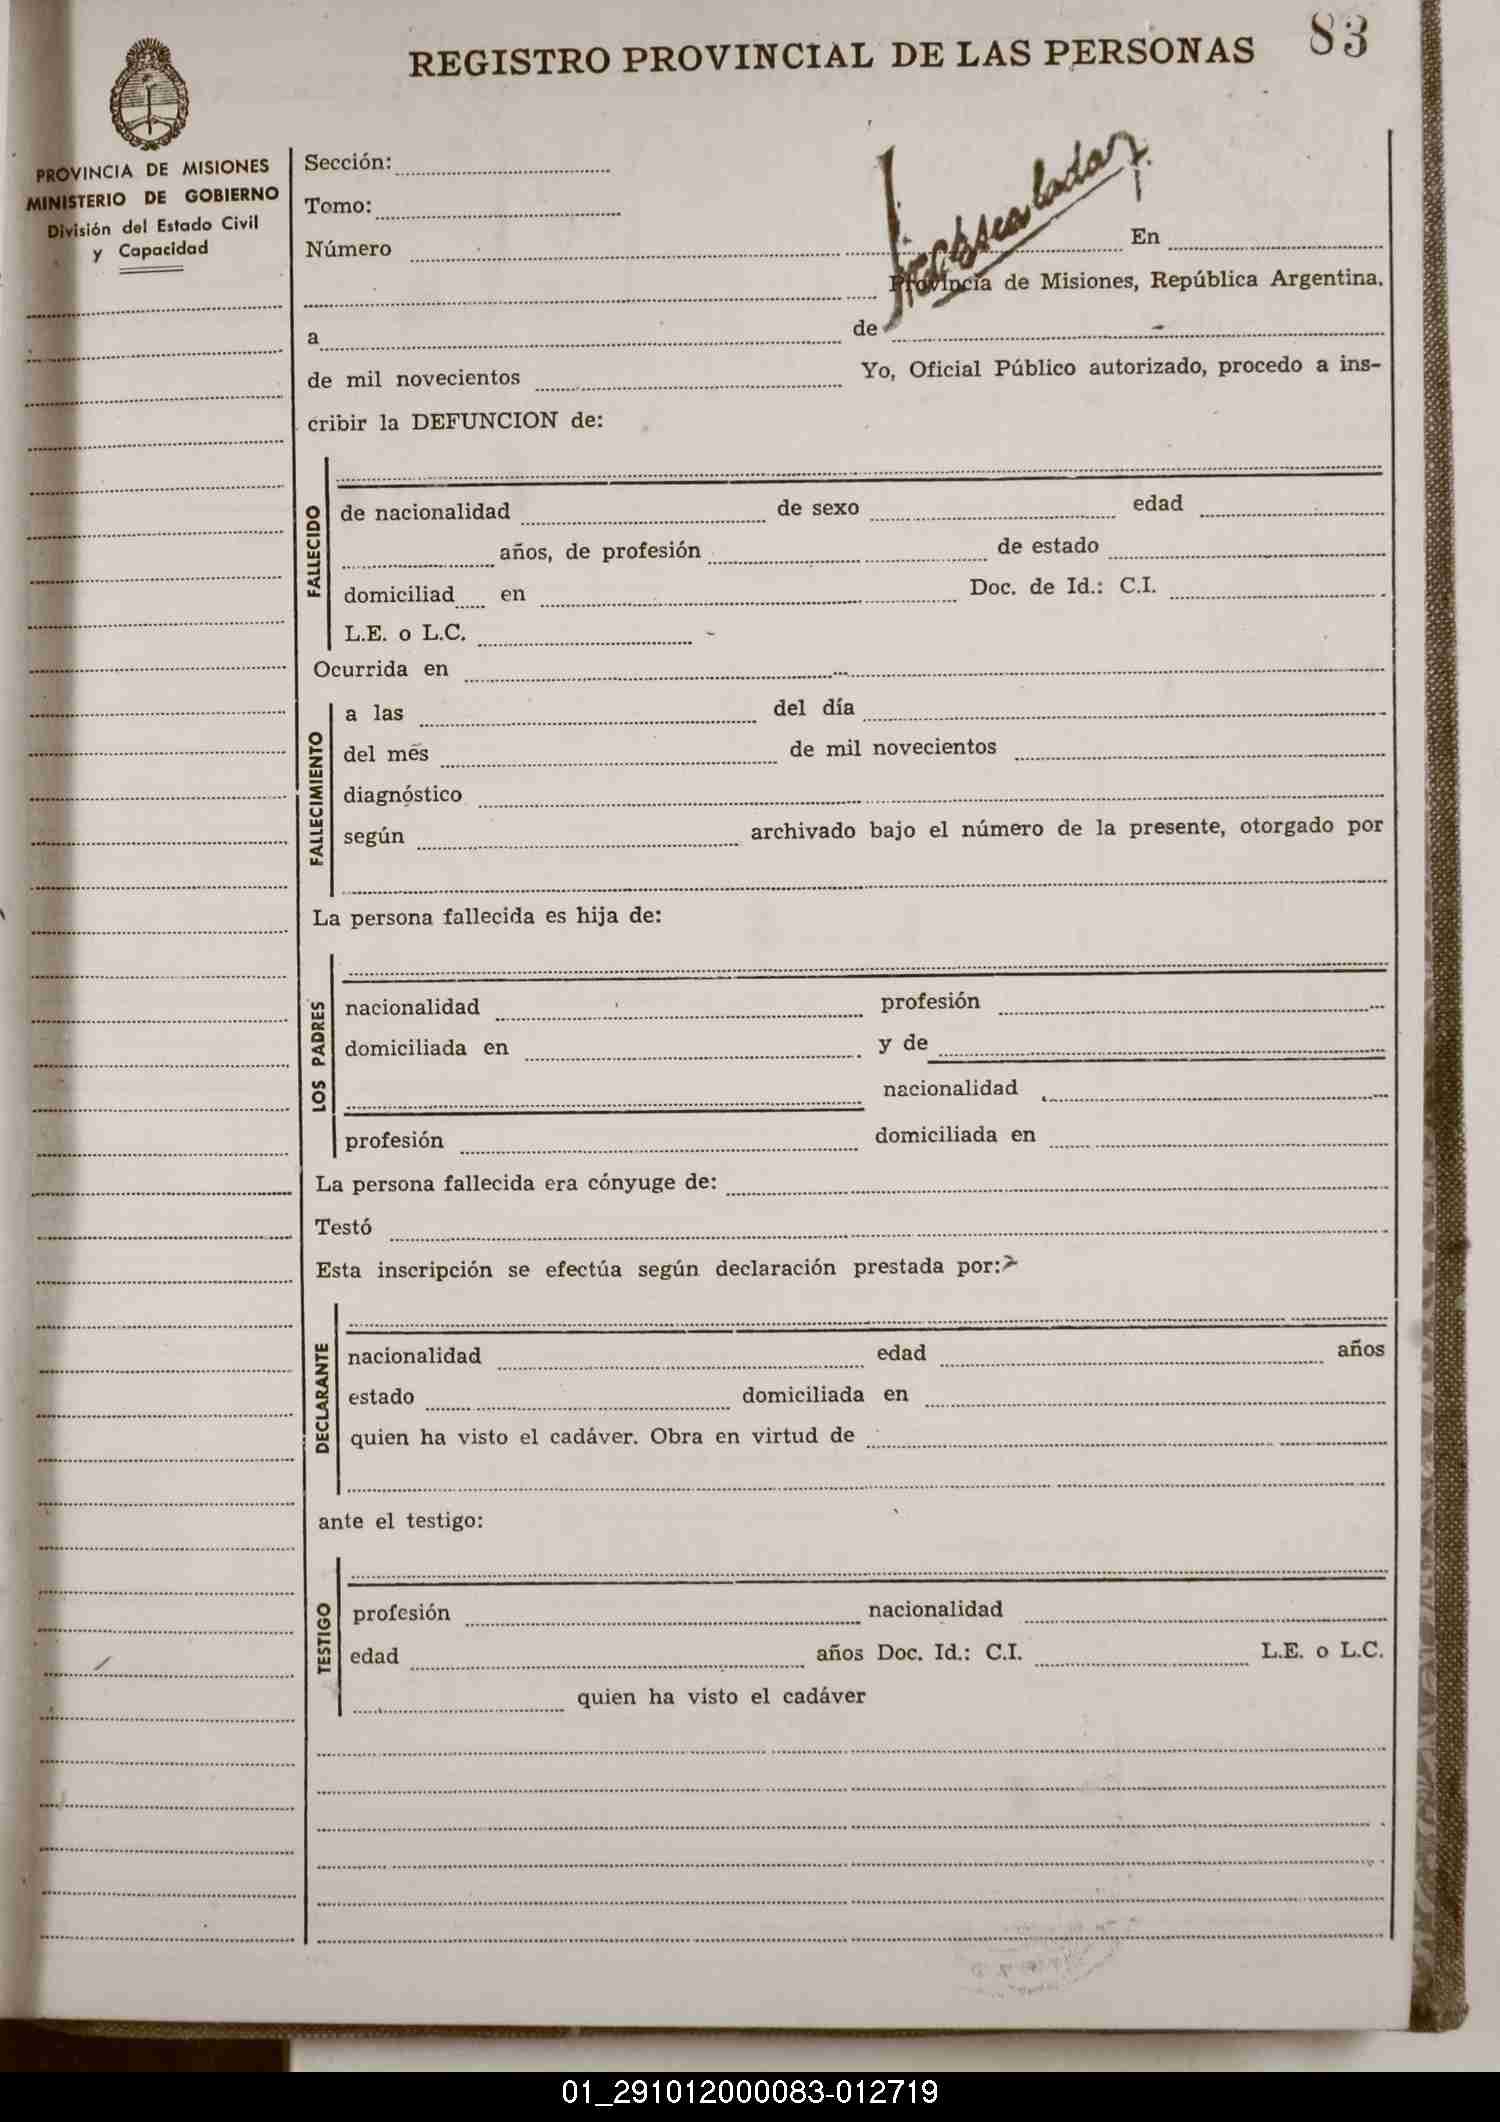 REGISTRO PROVINCIAL DE LAS PERSONAS 83
PROVINCIA DE MISIONES
MINISTERIO DE GOBIERNO
División del Estado Civil
y Capacidad
Sección:
Tomo:
Número En
Provincia de Misiones, República Argentina,
a de
de mil novecientos Yo, Oficial Público autorizado, procedo a ins-
cribir la DEFUNCION de:
FALLECIDO
de nacionalidad de sexo edad
años, de profesión de estado
domiciliad en Doc. de Id.: C.I.
L.E. o L.C.
Ocurrida en
FALLECIMIENTO
a las del día
del mes de mil novecientos
diagnóstico
según archivado bajo el número de la presente, otorgado por
La persona fallecida es hija de:
LOS PADRES
nacionalidad profesión
domiciliada en y de
nacionalidad
profesión domiciliada en
La persona fallecida era cónyuge de:
Testó
Esta inscripción se efectúa según declaración prestada por:
DECLARANTE
nacionalidad edad años
estado domiciliada en
quien ha visto el cadáver. Obra en virtud de
ante el testigo:
TESTIGO
profesión nacionalidad
edad años Doc. Id.: C.I. L.E. o L.C.
quien ha visto el cadáver
01_291012000083-012719